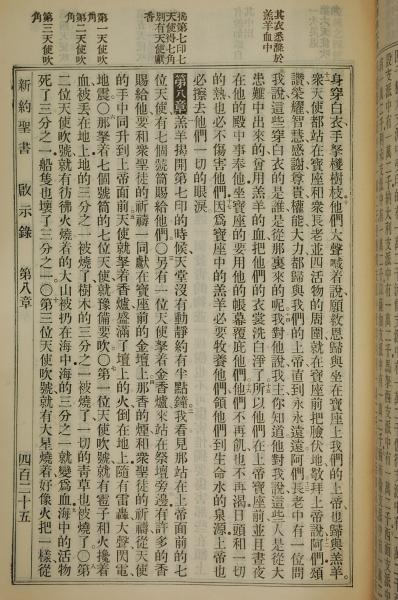 其衣悉滌於
羔羊血中
揭第七印七
天使得七角
別有天使獻
香
第一天使吹
角
第二天使吹
角
第三天使吹
角
身穿白衣手拏椶樹枝他們大聲喊着說願救恩歸與坐在寶座上我們的上帝也歸與羔羊
衆天使都站在寶座和衆長老並四活物的周圍就在寶座前把臉伏地敬拜上帝說阿們頌
讚榮耀智慧感謝尊貴權能大力都歸與我們的上帝直到永永遠遠阿們長老中有一位問
我說這些穿白衣的是誰是從那裏來的呢我對他說我主你知道他對我說這些人是從大
患難中出來的曾用羔羊的血把他們的衣裳洗白淨了所以他們在上帝寶座前並且晝夜
在他的殿中事奉他坐寶座的要用他的帳幕覆庇他們他們不再飢也不再渴日頭和一切
的熱也必不傷害他們因爲寶座中的羔羊必要牧養他們領他們到生命水的泉源上帝也
必擦去他們一切的眼淚
第八章羔羊揭開第七印的時候天堂沒有動靜約有半點鐘我看見那站在上帝面前的七
位天使有七個號筒賜給他們〇另有一位天使拏着金香爐來站在祭壇旁邊有許多的香
賜給他要和衆聖徒的祈禱一同獻在寶座前的金壇上那香的煙和衆聖徒的祈禱從天使
的手中同升到上帝面前天使就拏着香爐盛滿了壇上的火倒在地上隨有雷轟大聲閃電
地震〇那拏着七個號筒的七位天使就豫備要吹〇第一位天使吹號就有雹子和火攙着
血被丟在地上地的三分之一被燒了樹木的三分之一被燒了一切的青草也被燒了〇第
二位天使吹號就有彷彿火燒着的大山被扔在海中海的三分之一就變爲血海中的活物
死了三分之一船隻也壞了三分之一〇第三位天使吹號就有大星燒着好像火把一樣從
新約聖書 啟示錄 第八章 四百二十五